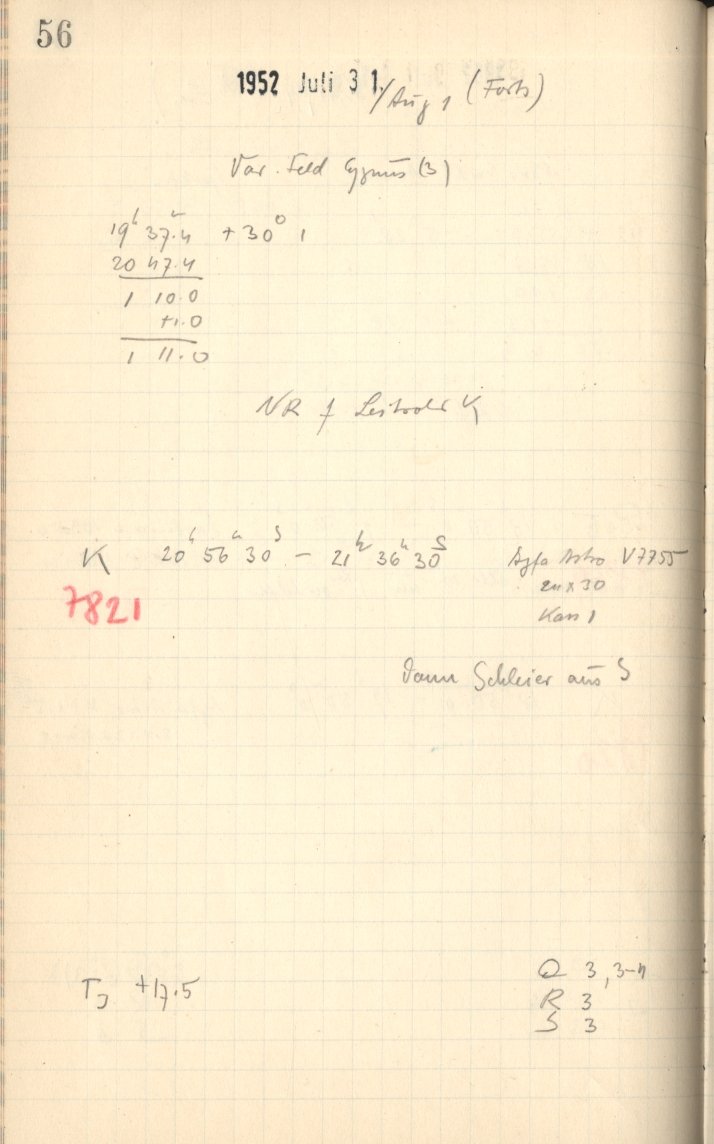 56
1952 Juli 31./Aug 1 (Forts)
Var. Feld Cygnus (3)
19h 37m.4 +30° 1
20 47.4
1 10.0
+1.0
1 11.0
NR f
K 20h 56m 30s – 21h 36m 30s Agfa Astro V7755
7821
24x30
Kass 1
Dann Schleier aus S
T3 +17.5
Q 3,3-4
R 3
S 3